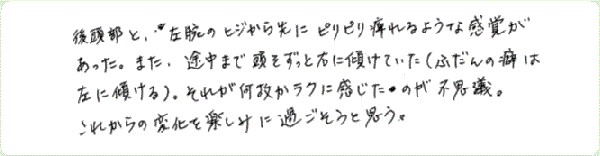 後頭部と、左腕のヒジから先にピリピリ痺れるような感覚が
あった。また、途中まで頭をずっと右に傾けていた(ふだんの癖は
左に傾ける)。それが何故かラクに感じたのが不思議。
これからの変化を楽しみに過ごそうと思う。